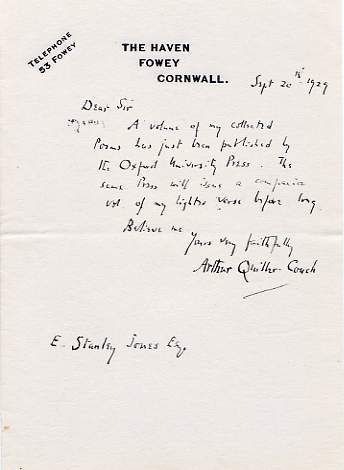 TELEPHONE
53 FOWEY
THE HAVEN
FOWEY
CORNWALL.
Sept 20th 1929
Dear Sir
A volume of my collected
Poems has just been published by
the Oxford University Press. The
same Press will issue a companion
vol of my lighter verse before long.
Believe me
Yours very faithfully
Arthur Quiller-Couch
E. Stanley Jones Esq.